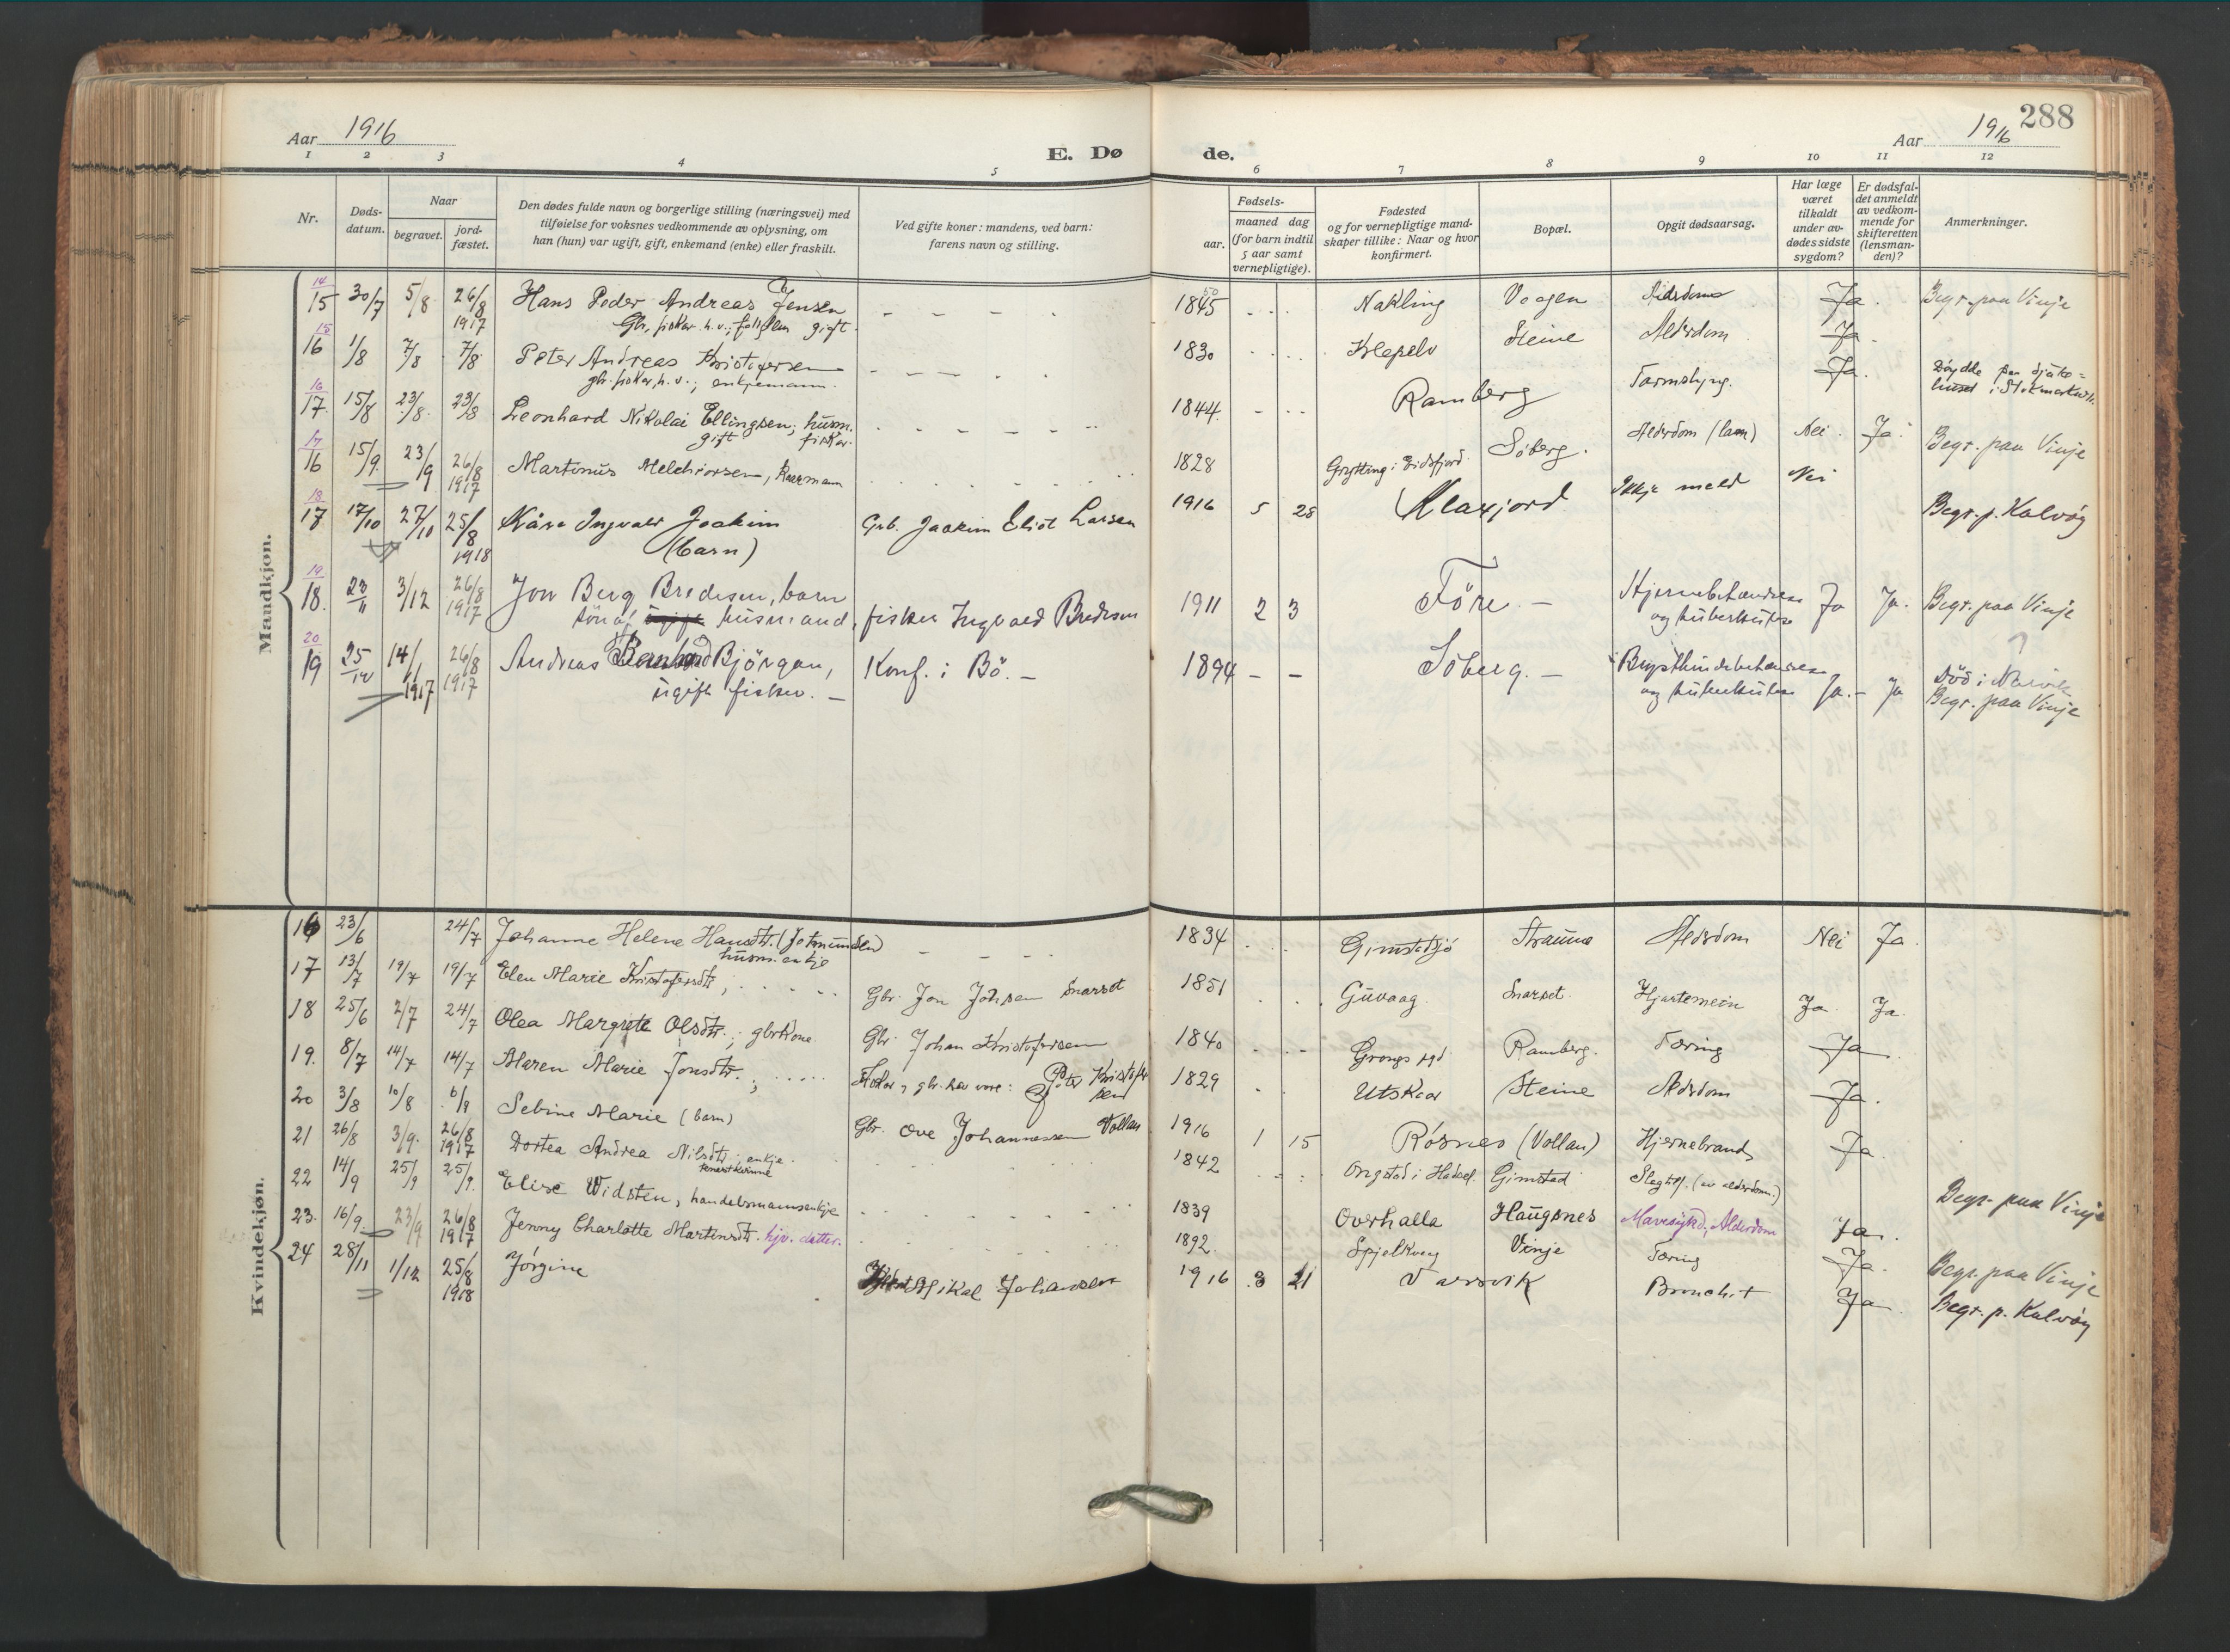 Aar 1916
E. Dø de.
Aar 1916
288
1 2 3 4 5 6 7 8 9 10 11 12
Nr.
Døds-datum.
Naar
begravet.
jord-fæstet.
Den dødes fulde navn og borgerlige stilling (næringsvei) med
tilføielse for voksnes vedkommende av oplysning, om
han (hun) var ugift, gift, enkemand (enke) eller fraskilt.
Ved gifte koner: mandens, ved barn:
farens navn og stilling.
Fødsels-
aar.
maaned dag
(for barn indtil
5 aar samt
vernepligtige).
Fødested
og for vernepligtige mand-
skaper tillike: Naar og hvor
konfirmert.
Bopæl.
Opgit dødsaarsag.
Har læge
været
tilkaldt
under av-
dødes sidste
sygdom?
Er dødsfal-
det anmeldt
av vedkom-
mende for
skifteretten
(lensman-
den)?
Anmerkninger.
Mandkjøn.
14 15 30/7 5/8 26/8 1917 Hans Peder Andreas Jensen 1845 Nakling Vaagen Alderdom Ja. Begr. paa Vinje
gift
15 16 1/8 7/8 7/8 Peter Andreas Kristofersen 1830 Klepelv Steine Alderdom Ja.
gbr. fisker, h.v.; enkjemann.
16 17. 15/8 23/8 23/8 Leonhard Nikolai Ellingsen; husm. 1844 Ramberg Tarmslyng. Ja. Døydde paa sjuke=
gift fisker. huset i Stokmarknes.
17 16 15/9. 23/9 26/8 1917 Martinus Melchiorsen, kaarmann 1828 Grytting i Eidsfjord Søberg. Alderdom (lam) Nei. Ja. Begr. paa Vinje
18 17 17/10 27/10 25/8 1918 Kåre Ingvald Joakim Gub. Joakim Eliot Larsen 1916 5 28 Klaxjord Ikkje meld Nei Begr. p. Kalvøy
(barn)
19 18. 23/11 3/12 26/8 1917 Jon Berg Bredesen, barn 1911 2 3 Före. – Hjernebetændelse Ja Ja. Begr. paa Vinje
søn af husmand, fisker Ingvald Bredesen og tuberkulose
20 19 25/12 14/1 1917 26/8 1917 Andreas Bernhard Björgan, Konf. i Bö. – 1894 – – Söberg. – Brysthindebetændelse Ja. – Ja Död i Narvik
ugift fisker. – og tuberkulose Begr. paa Vinje
Kvindekjøn.
16 23/6 24/7 Johanne Helene Hansdtr. 1834 Gimstadsjø Straume Alderdom Nei Ja.
husm. enkje
17 13/7 19/7 19/7 Elen Marie Kristofersdtr; Gbr. Jon Johnsen Snarset 1851 Guvaag Snarset Hjartemein Ja. Ja.
18 25/6 2/7 24/7 Olea Margrete Olsdtr.; gbrkone Gbr. Johan Kristofersen 1840 Grongs pgd Ramberg. Tæring Ja
19. 8/7 14/7 14/7 Maren Marie Jonsdtr.; Peter Kristofer sen 1829 Utskor Steine Alderdom Ja.
20 3/8 10/8 Sebine Marie (barn) Gbr. Ove Johannessen Vollan 1916 1 15 Røsnes (Vollan) Hjernebrand Ja
21 26/8 3/9. 26/8 1917 Dortea Andrea Nilsdtr; enkje. 1842 Ongstad i Hadsel Gimstad
22 14/9 25/9 25/9. Elise Widsten, handelsmannsenkje 1839 Overhalla Haugsnes Mavesykd, Alderdom Ja. Begr. paa Vinje
23. 16/9. 23/9 26/8 1917 Jenny Charlotte Martinsdt. hjv. datter. 1892. Vinje Tæring Ja. Begr. paa Vinje
24 28/11 1/12 25/8 1918 Jørgine Mikal Johansen 1916 3 21 Vassvik Bronchit Ja Begr. p. Kalvøy